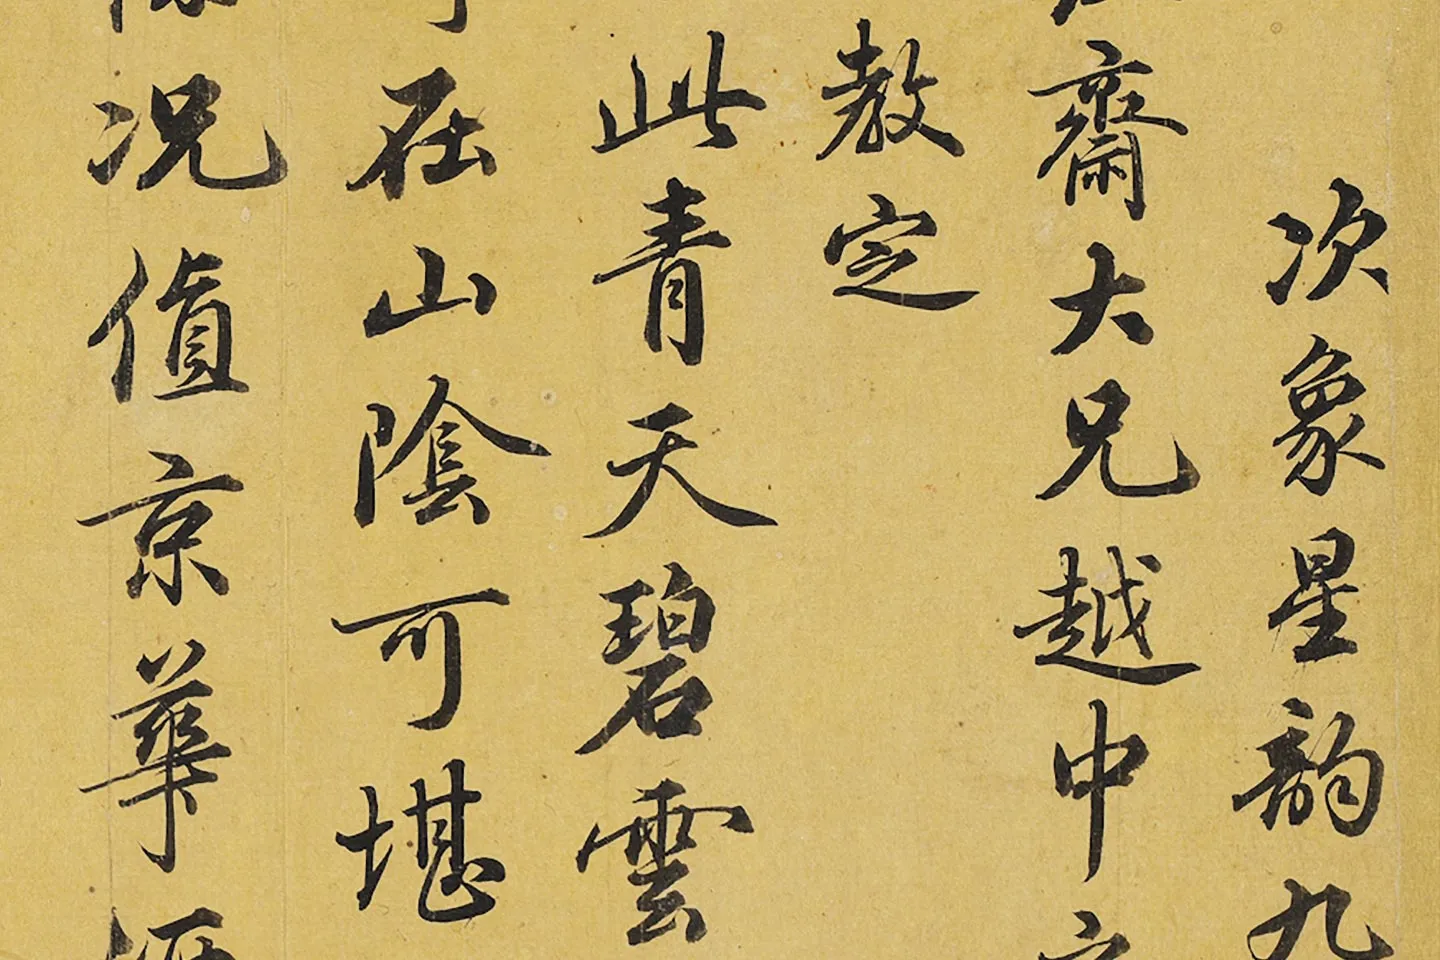 次象星韵九
齋大兄越中
教定
此青天碧雲
在山陰可堪
况值京華